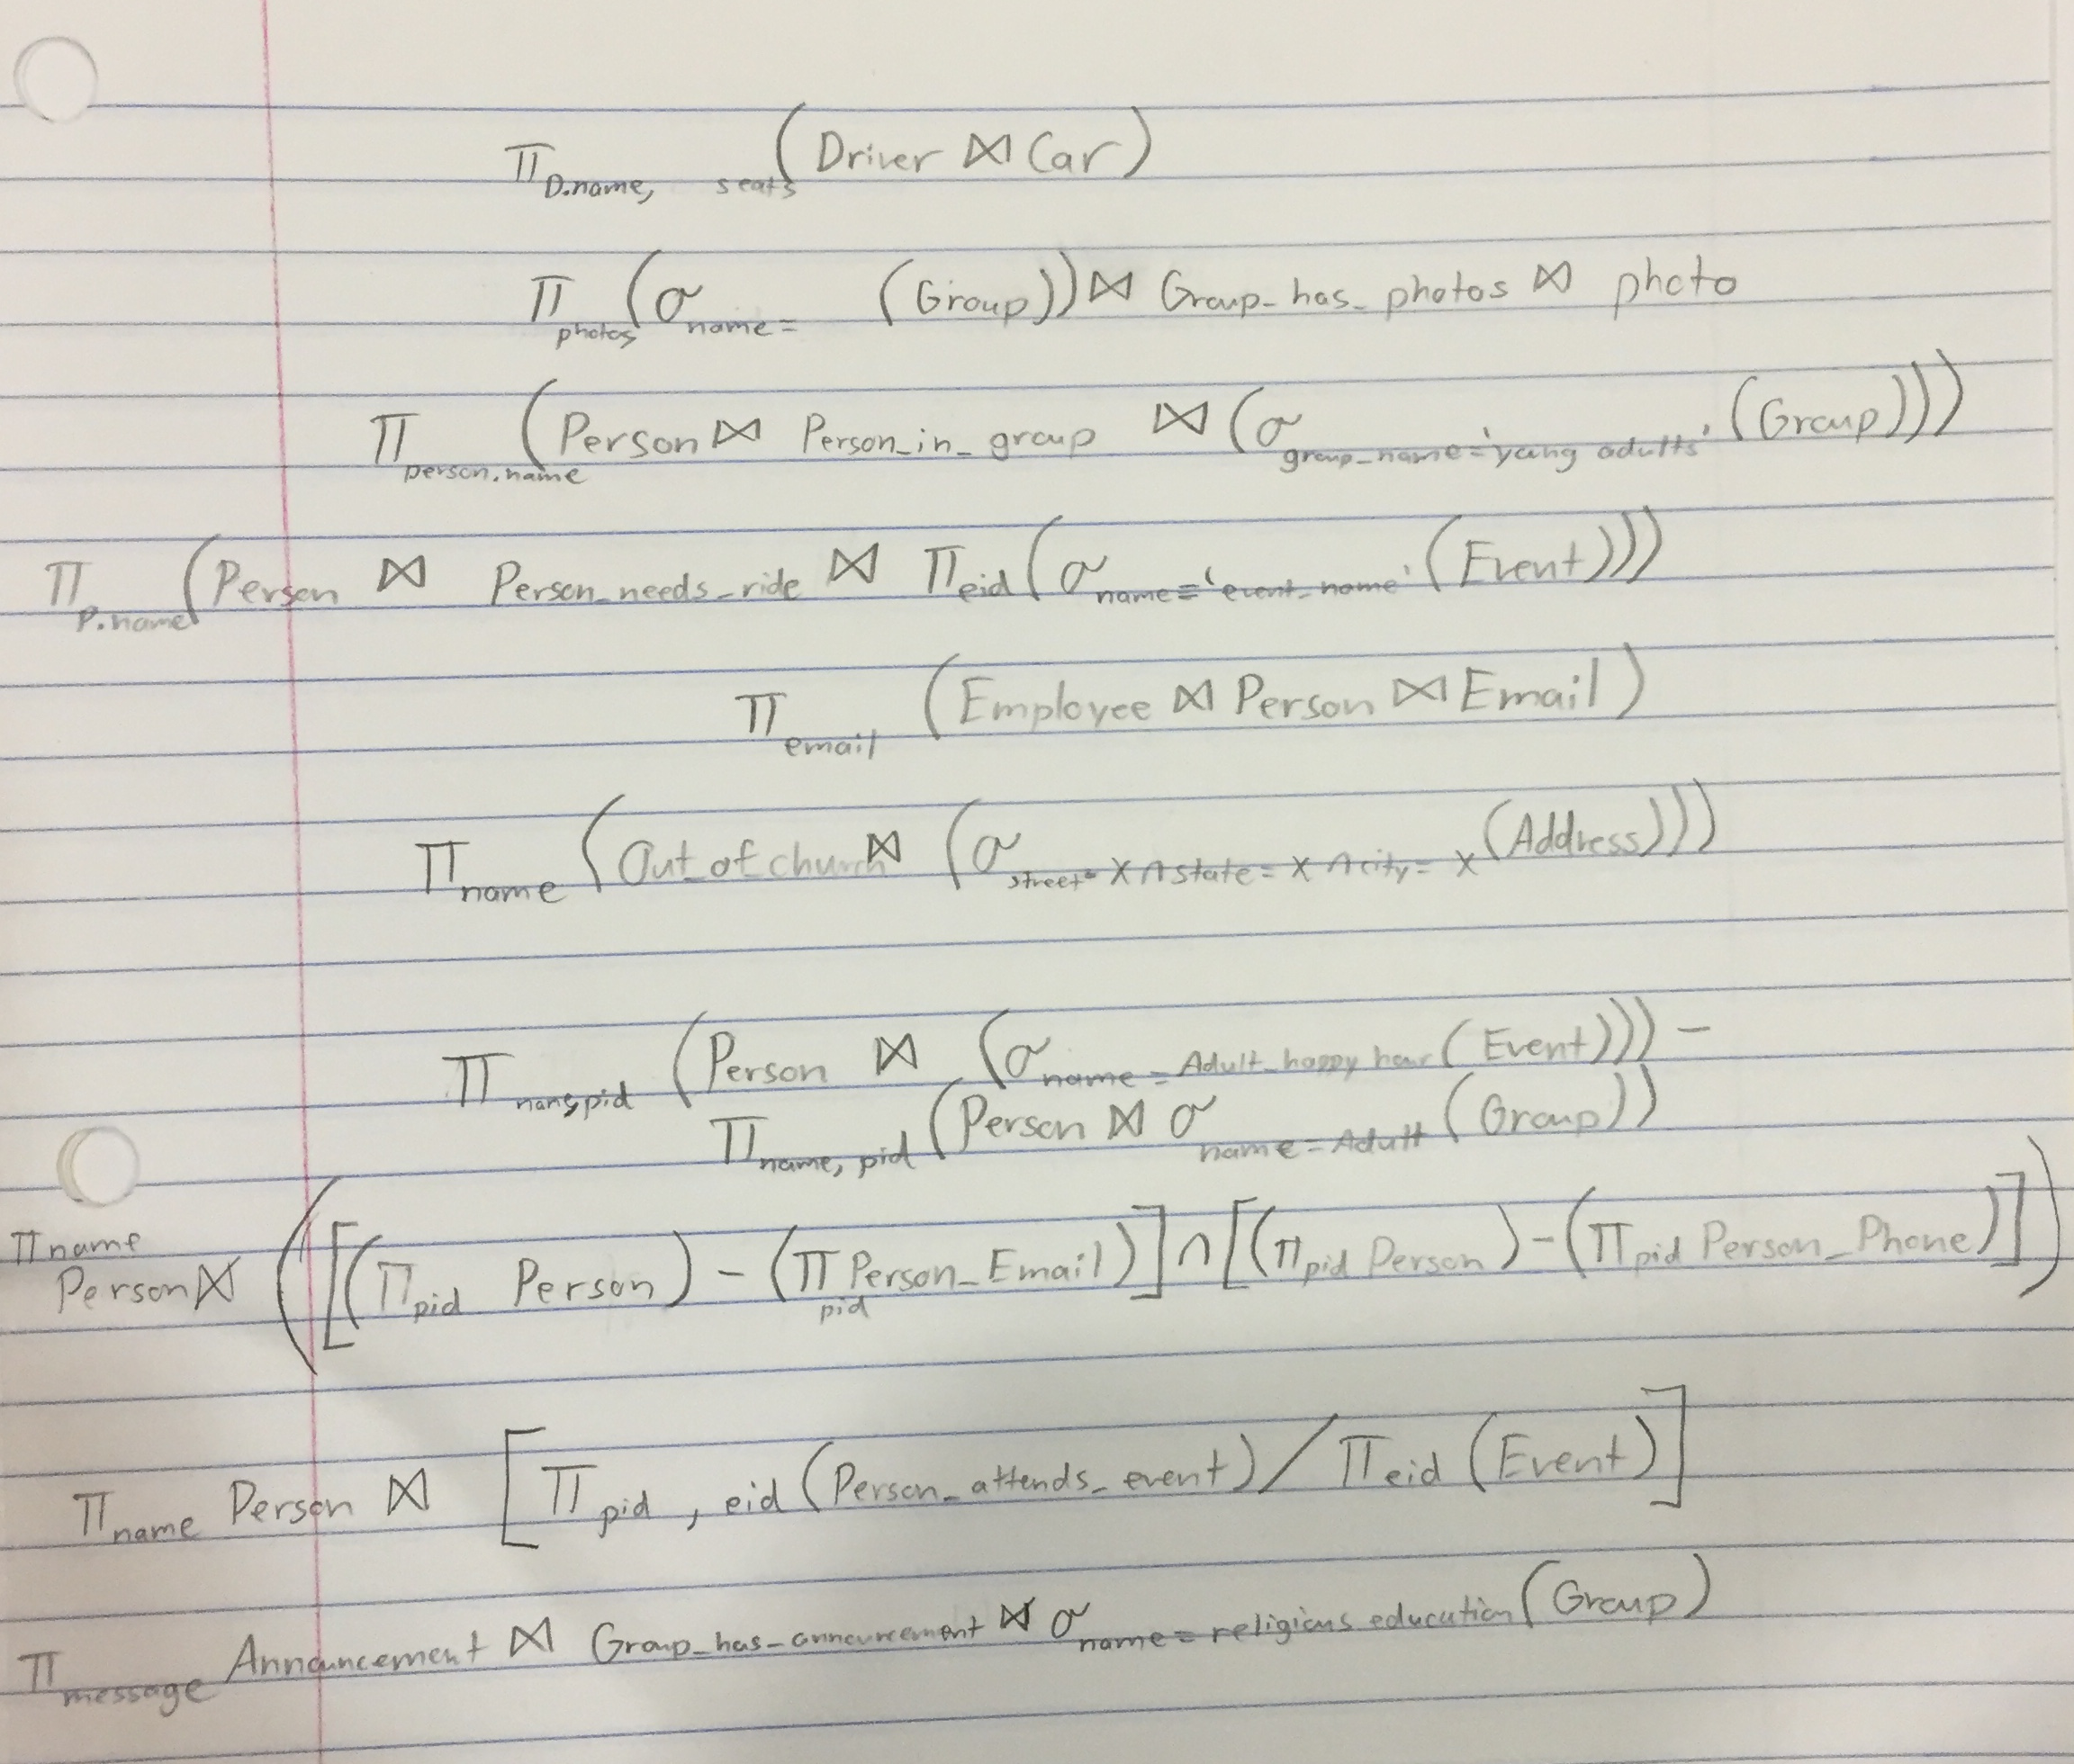 π D.name, seats (Driver ⋈ Car)
π photos (σ name= (Group)) ⋈ Group_has_photos ⋈ photo
π person.name (Person ⋈ Person_in_group ⋈ (σ group_name='young adults' (Group)))
π P.name (Person ⋈ Person_needs_ride ⋈ π eid (σ name='event_name' (Event)))
π email (Employee ⋈ Person ⋈ Email)
π name (Out_of church ⋈ (σ street=X ∧ state=X ∧ city=X (Address)))
π name,pid (Person ⋈ (σ name=Adult_happy hour (Event))) −
π name, pid (Person ⋈ σ name=Adult (Group))
π name
Person ⋈ ([(π pid Person) − (π pid Person_Email)] ∩ [(π pid Person) − (π pid Person_Phone)])
π name Person ⋈ [π pid, eid (Person_attends_event) / π eid (Event)]
π message Announcement ⋈ Group_has_announcement ⋈ σ name=religious education (Group)